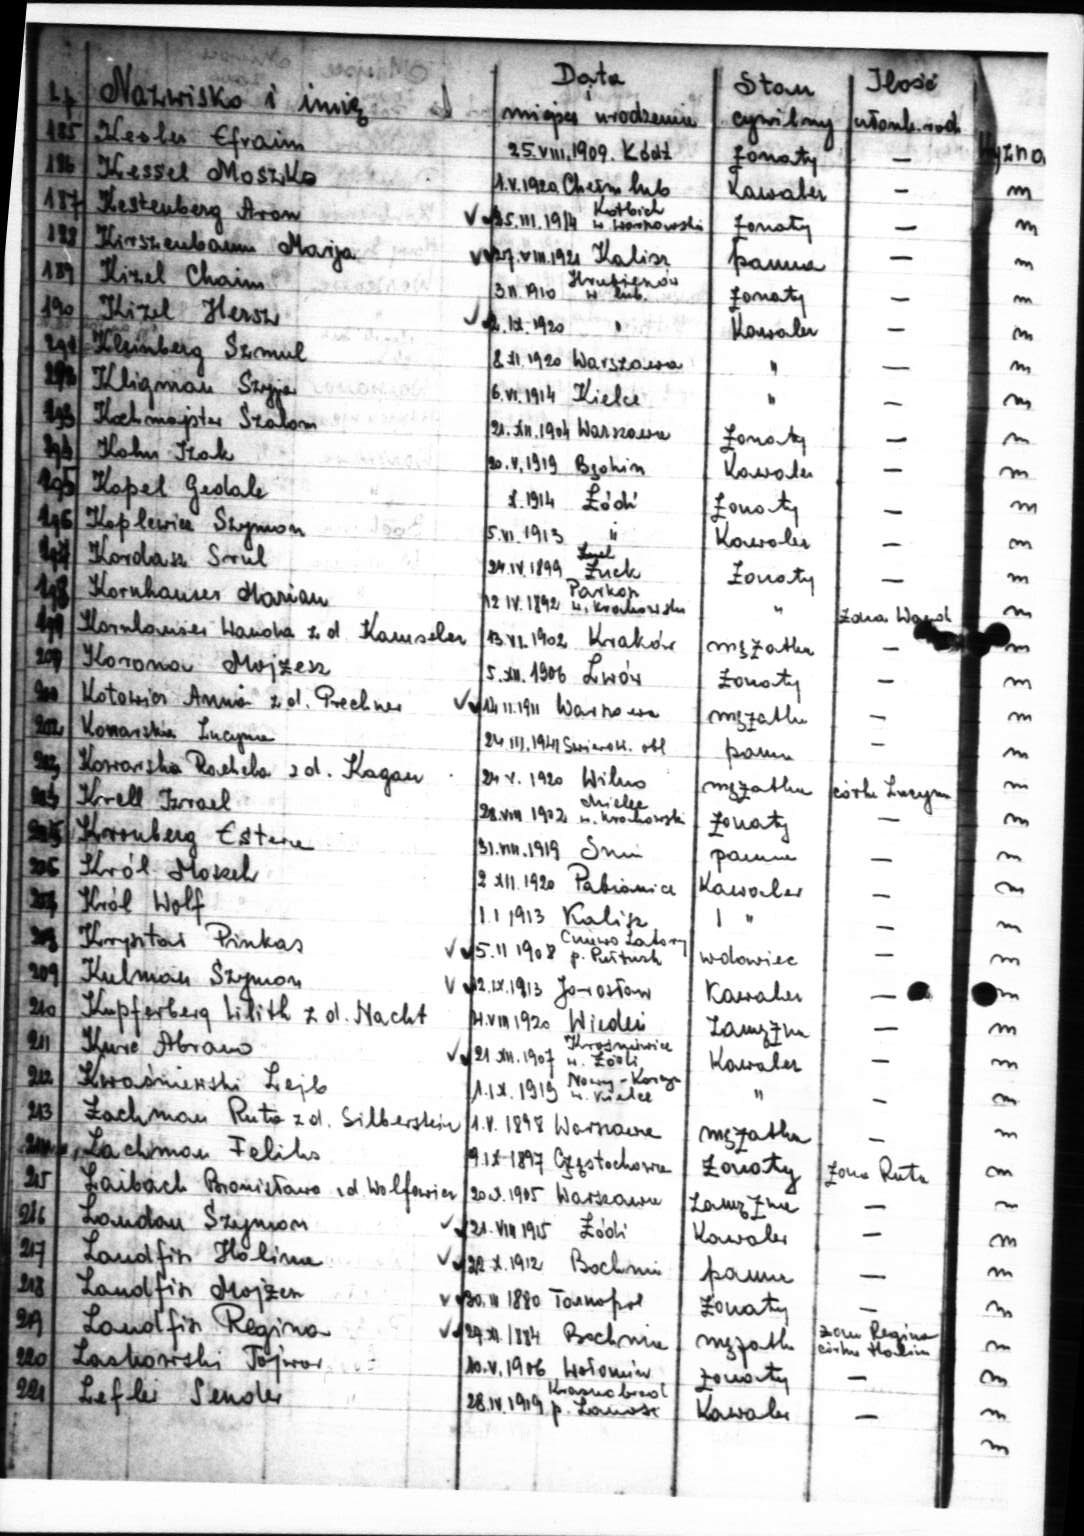 Lp Nazwisko i imię Data i miejsce urodzenia Stan cywilny Ilość członk. rod. Wyzna
185 Kesler Efraim 25.VIII.1909. Łódź żonaty — m
186 Kessel Moszko 1.V.1920 Chełm lub Kawaler — m
187 Kestenberg Aron 25.III.1914 w. Warszowski żonaty — m
188 Kirszenbaum Marja 27.VIII.1921 Kalisz panna — m
189 Kizel Chaim 3 II 1910 Hrubieszów w. lub. żonaty — m
190 Kizel Hersz 2.IX.1920 " Kawaler — m
191 Kleinberg Szmul 8 XI.1920 Warszawa " — m
192 Kligman Szyja 6.VI.1914 Kielce " — m
193 Kochmajster Szalom 21.XII.1904 Warszawa żonaty — m
194 Kohn Izak 20.V.1919 Kawaler — m
195 Kopel Gedale X.1914 Łódź żonaty — m
196 Koplewicz Szymon 5.VI.1913 " Kawaler — m
197 Kordasz Srul 24.IV.1899 Łuck żonaty — m
198 Kornhauser Marian 12 IV.1892 w. Krakowskie " żona Wand m
199 Kornhauser Wanda z d. Kanseler 13.VI.1902 Kraków mężatka — m
200 Korona Mojżesz 5.XII.1906 Lwów żonaty — m
201 Kotowicz Anna z d. Prechner 14.II.1911 Warszawa mężatka — m
202 Konarska Lucyna 24.III.1941 obl panna — m
203 Kowarska Rachela z d. Kagan 24 V. 1920 Wilno mężatka córka Lucyna m
204 Krell Izrael 28.VIII 1902 Mielec w. Krakowski żonaty — m
205 Kronberg Estera 31.VIII.1919 panna — m
206 Król Moszek 2 XII.1920 Pabianice Kawaler — m
207 Król Wolf 1.I 1913 Kalisz " — m
208 Kryształ Pinkas 5.II 1908 p. Pułtusk wdowiec — m
209 Kulman Szymon 2.IX.1913 Jarosław Kawaler — m
210 Kupferberg Lilith z d. Nacht VIII 1920 Wiedeń zamężna — m
211 Kurc Abram 21.XII.1907 Krośniewice w. Łódź Kawaler — m
212 Kwaśniewski Lejb 1.IX.1919 Nowy-Korczyn w. Kielce " — m
213 Lachman Ruta z d. Silberstein 1.V.1898 Warszawa mężatka — m
214 Lachman Feliks 9.IX 1897 Częstochowa żonaty żona Ruta m
215 Laibach Bronisława z d Wolfowicz 20.V.1905 Warszawa zamężna — m
216 Landau Szymon 21.VIII 1915 Łódź Kawaler — m
217 Landfisz Halina 22.X.1912 Bochnia panna — m
218 Landfisz Mojżesz 30.III 1880 Tarnopol żonaty — m
219 Landfisz Regina 29.XI.1884 Bochnia mężatka żona Regina córka Halina m
220 Laskowski Tojwor 10.V.1906 Wołomin żonaty — m
221 Lefler Sender 28.IV.1919 Krasnobród p. Zamość Kawaler — m
m